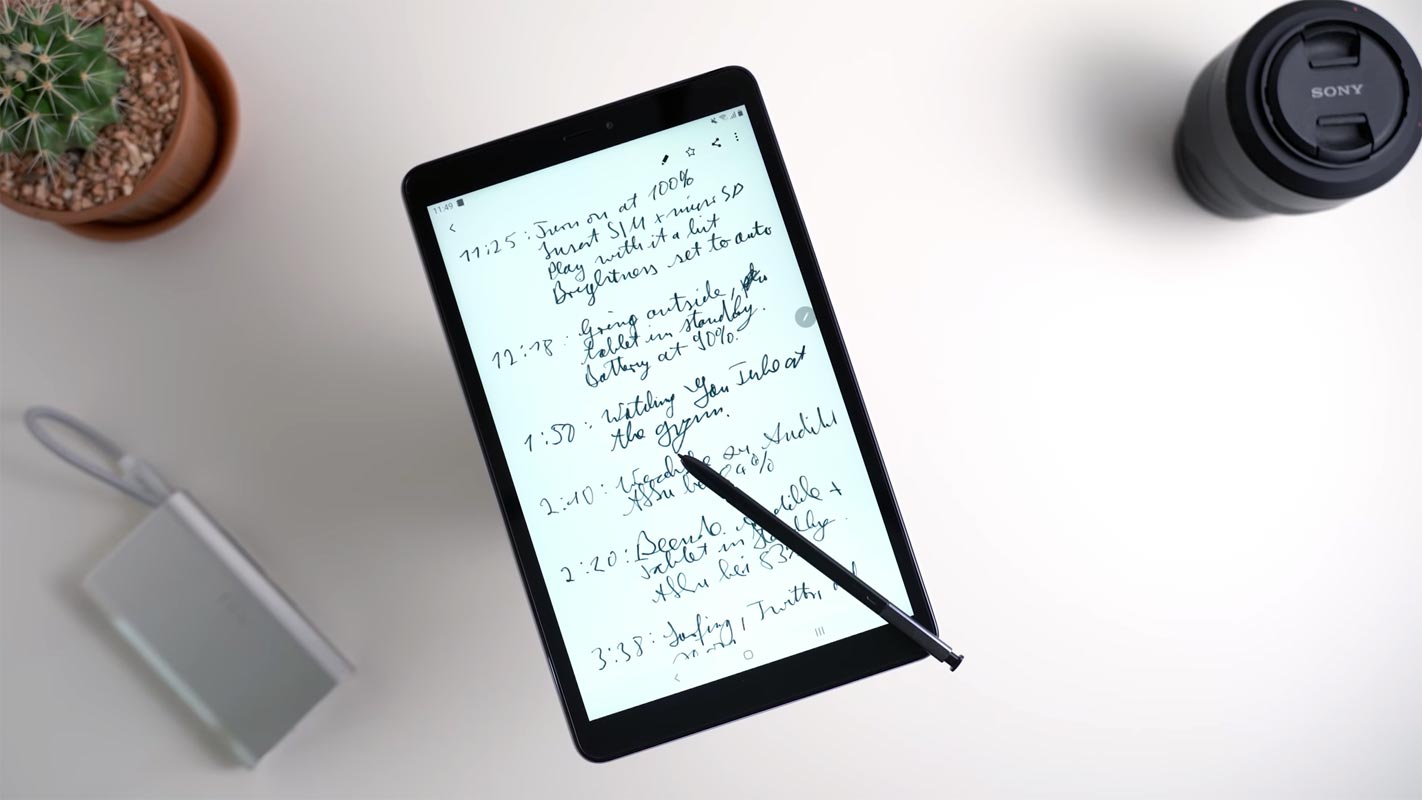 SONY
11:49
11:25: Turn on at 100%
Insert SIM + micro SD
Play with it a bit
Brightness set to auto
12:18: Going outside,
tablet in standby.
Battery at 90%.
1:50: Watching YouTube at
the gym.
2:10: zu Audible
Akku
2:20: Beende Audible +
tablet in standby.
Akku bei 83%
3:38: Surfing, Twitter,